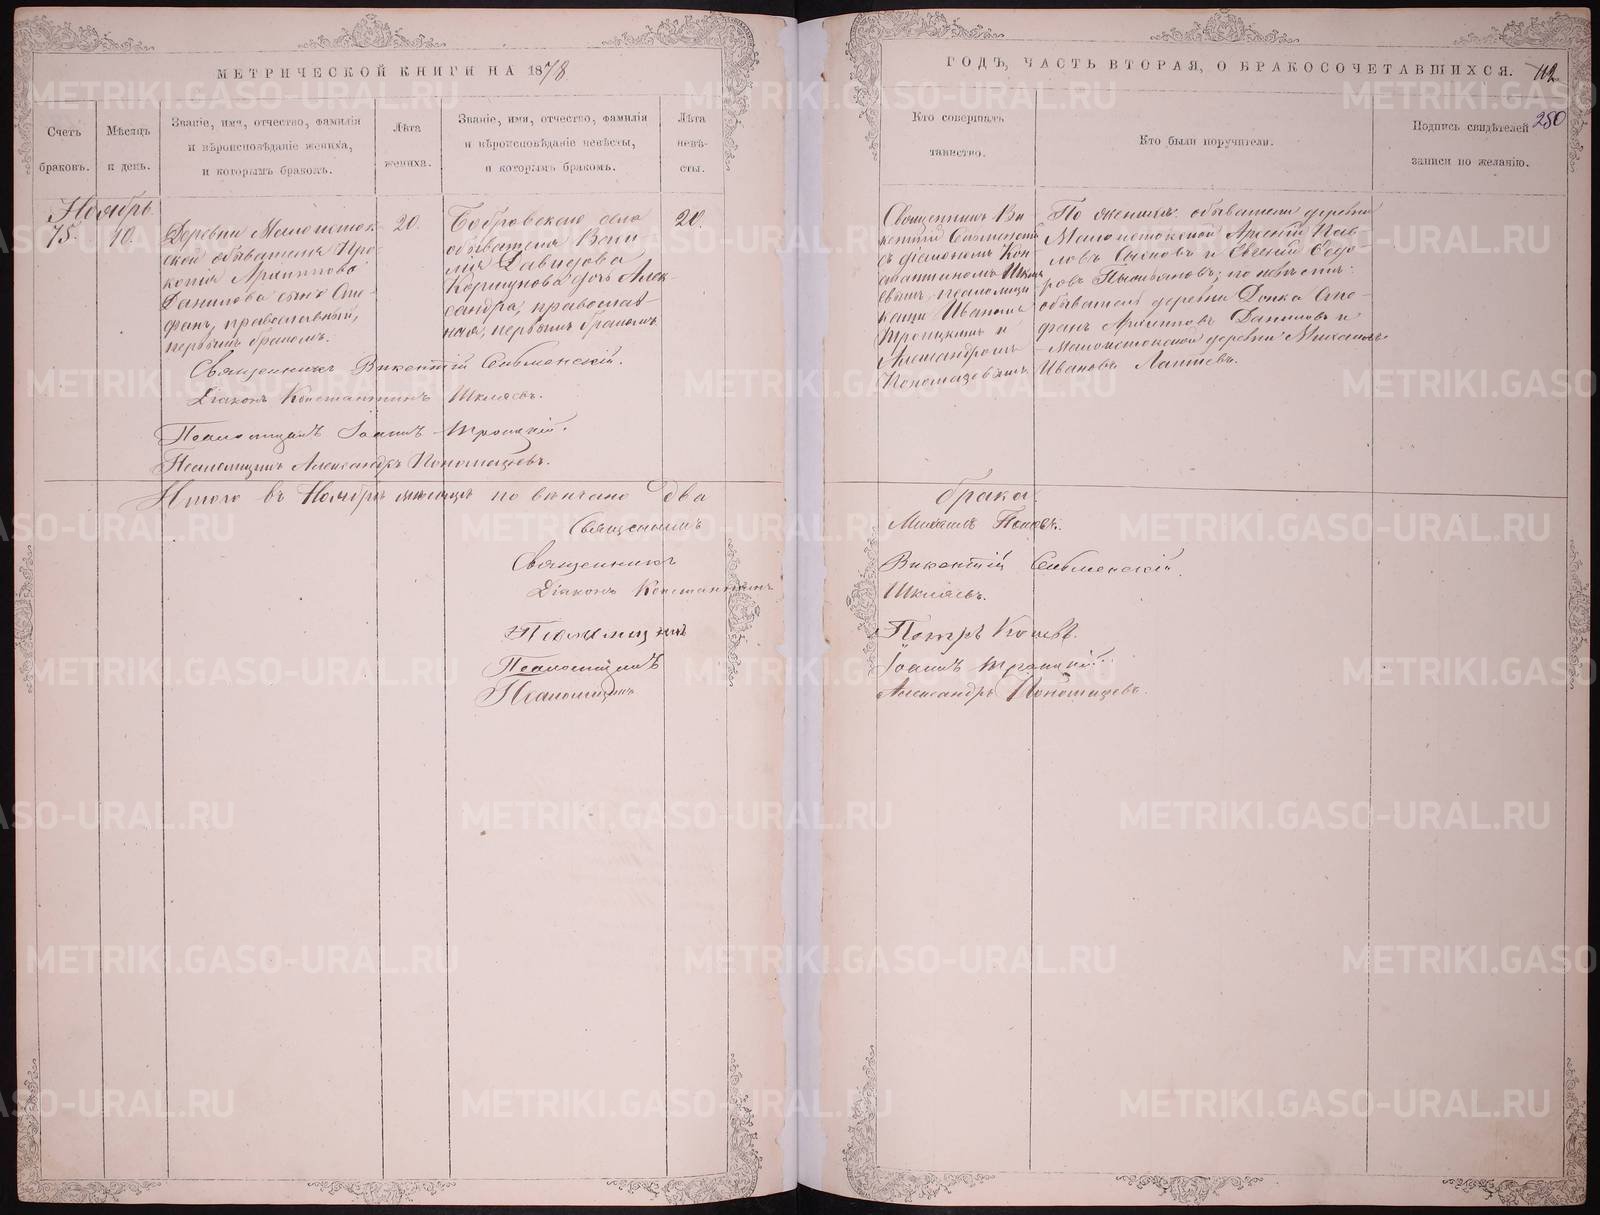 МЕТРИЧЕСКОЙ КНИГИ НА 1878
ГОДЪ, ЧАСТЬ ВТОРАЯ, О БРАКОСОЧЕТАВШИХСЯ.
112
280
Счетъ
браковъ.
Мѣсяцъ
и день.
Званіе, имя, отчество, фамилія
и вѣроисповѣданіе жениха,
и которымъ бракомъ.
Лѣта
жениха.
Званіе, имя, отчество, фамилія
и вѣроисповѣданіе невѣсты,
и которымъ бракомъ.
Лѣта
невѣ-
сты.
Кто совершалъ
таинство.
Кто были поручители.
Подпись свидѣтелей
записи по желанію.
Ноябрь
75.
10.
Деревни Малоисток-
ской обывателя Про-
копія Архиппова
Данилова сынъ Сте-
фанъ, православный,
первымъ бракомъ.
20.
Бобровскаго села
обывателя
Давидова
Коршунова дочь Алек-
сандра, православ-
ная, первымъ бракомъ
20.
Священникъ Ви-
кентій Сельменскій
съ діакономъ Кон-
стантиномъ Шкля-
евымъ, псаломщи-
ками Иваномъ
Троицкимъ и
Александромъ
Пономаревымъ
По женихѣ: обыватели деревни
Малоистокской Арсеній Пав-
ловъ и Евгеній Ѳедо-
ровъ по невѣстѣ:
обыватель деревни Стe-
фанъ Архипповъ Даниловъ и
Малоистокской деревни Михаилъ
Ивановъ Лаптевъ.
Священникъ Викентій Сельменскій.
Діаконъ Константинъ Шкляевъ.
Псаломщикъ Іоаннъ Троицкій.
Псаломщикъ Александръ Пономаревъ.
Итого въ Ноябрѣ мѣсяцѣ повѣнчано два брака.
Священникъ Михаилъ Поповъ.
Священникъ Викентій Сельменскій.
Діаконъ Константинъ Шкляевъ.
Псаломщикъ Петръ
Псаломщикъ Іоаннъ Троицкій.
Псаломщикъ Александръ Пономаревъ.
METRIKI.GASO-URAL.RU